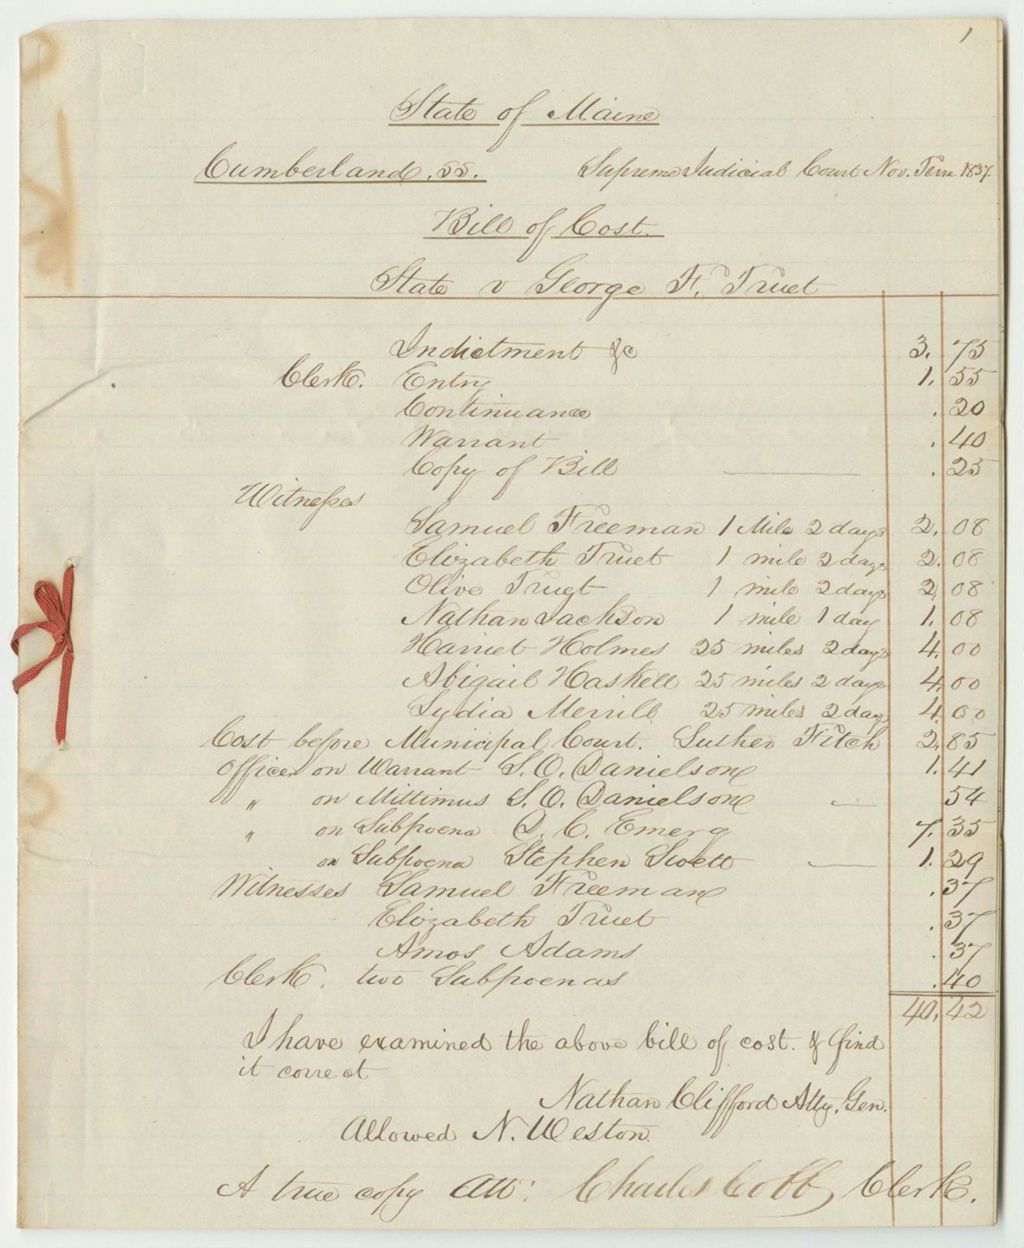 1
State of Maine
Cumberland, ss. Supreme Judicial Court Nov. Term 1837.
Bill of Cost.
State v George F. Truet
Indictment &c 3. 75
Clerk. Entry 1. 55
Continuance . 20
Warrant . 40
Copy of Bill . 25
Witnesses
Samuel Freeman 1 Mile 2 days 2. 08
Elizabeth Truet 1 mile 2 days 2. 08
Olive Truet 1 mile 2 days 2. 08
Nathan Jackson 1 mile 1 day 1. 08
Harriet Holmes 25 miles 2 days 4. 00
Abigail Haskell 25 miles 2 days 4. 00
Lydia Merrill 25 miles 2 days 4. 00
Cost before Municipal Court. Luther Fitch 2. 85
Officer on Warrant S. O. Danielson 1. 41
" on Mittimus S. O. Danielson 54
" on Subpoena D. C. Emery 7. 35
on Subpoena Stephen Swett 1. 29
Witnesses Samuel Freeman . 37
Elizabeth Truet . 37
Amos Adams . 37
Clerk. two Subpoenas . 40
40. 42
I have examined the above bill of cost. & find
it correct
Nathan Clifford Atty. Gen.
Allowed N. Weston.
A true copy Att: Charles Cobb, Clerk.